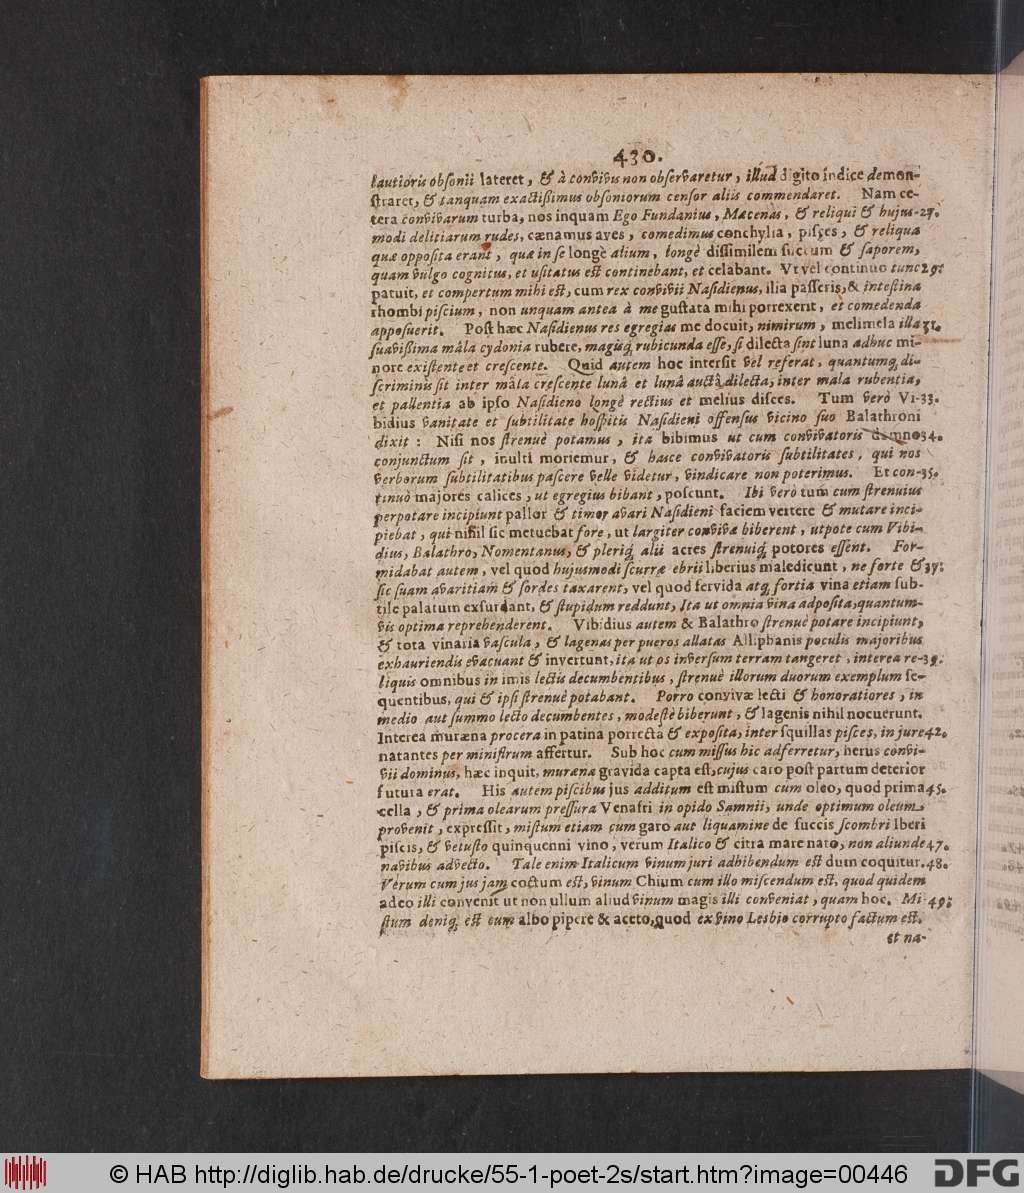 430.
lautioris obsonii lateret, & à convivis non observaretur, illud digito indice demon-
straret, & tanquam exactißimus obsoniorum censor aliis commendaret. Nam ce-
tera convivarum turba, nos inquam Ego Fundanius, Mæcenas, & reliqui & hujus- 27.
modi delitiarum rudes, cænamus aves, comedimus conchylia, pisces, & reliqua
quæ opposita erant, quæ in se longè alium, longè dissimilem succum & saporem,
quam vulgo cognitus, et usitatus est continebant, et celabant. Vt vel continuo tunc 29.
patuit, et compertum mihi est, cum rex convivii Nasidienus, ilia passeris, & intestina
rhombi piscium, non unquam antea à me gustata mihi porrexerit, et comedenda
apposuerit. Post hæc Nasidienus res egregias me docuit, nimirum, melimela illa 31.
suavißima mâla cydonia rubere, magisq́; rubicunda esse, si dilecta sint luna adhuc mi-
nore existente et crescente. Quid autem hoc intersit vel referat, quantumq́; di-
scriminis sit inter mâla crescente lunâ et lunâ auctâ dilecta, inter mala rubentia,
et pallentia ab ipso Nasidieno longè rectius et melius disces. Tum verò Vi- 33.
bidius vanitate et subtilitate hospitis Nasidieni offensus vicino suo Balathroni
dixit: Nisi nos strenuè potamus, ita bibimus ut cum convivatoris damno 34.
conjunctum sit, inulti moriemur, & hasce convivatoris subtilitates, qui nos
verborum subtilitatibus pascere velle videtur, vindicare non poterimus. Et con- 35.
tinuò majores calices, ut egregius bibant, poscunt. Ibi verò tum cum strenuius
perpotare incipiunt pallor & timor avari Nasidieni faciem vertere & mutare inci-
piebat, qui nihil sic metuebat fore, ut largiter convivæ biberent, utpote cum Vibi-
dius, Balathro, Nomentanus, & pleriq́; alii acres strenuiq́; potores essent. For-
midabat autem, vel quod hujusmodi scurræ ebrii liberius maledicunt, ne forte & 37.
sic suam avaritiam & sordes taxarent, vel quod fervida atq́; fortia vina etiam sub-
tile palatum exsurdant, & stupidum reddunt, Ita ut omnia vina adposita, quantum-
vis optima reprehenderent. Vibidius autem & Balathro strenuè potare incipiunt,
& tota vinaria vascula, & lagenas per pueros allatas Alliphanis poculis majoribus
exhauriendis evacuant & invertunt, ita ut os inversum terram tangeret, interea re- 39.
liquis omnibus in imis lectis decumbentibus, strenuè illorum duorum exemplum se-
quentibus, qui & ipsi strenuè potabant. Porro convivæ lecti & honoratiores, in
medio aut summo lecto decumbentes, modestè biberunt, & lagenis nihil nocuerunt.
Interea muræna procera in patina porrecta & exposita, inter squillas pisces, in jure 42.
natantes per ministrum affertur. Sub hoc cum missus hic adferretur, herus convi-
vii dominus, hæc inquit, muræna gravida capta est, cujus caro post partum deterior
futura erat. His autem piscibus jus additum est mistum cum oleo, quod prima 45.
cella, & prima olearum pressura Venafri in opido Samnii, unde optimum oleum
provenit, expressit, mistum etiam cum garo aut liquamine de succis scombri Iberi
piscis, & vetusto quinquenni vino, verum Italico & citra mare nato, non aliunde 47.
navibus advecto. Tale enim Italicum vinum juri adhibendum est dum coquitur. 48.
Verum cum jus jam coctum est, vinum Chium cum illo miscendum est, quod quidem
adeo illi convenit ut non ullum aliud vinum magis illi conveniat, quam hoc. Mi- 49.
stum deniq́; est cum albo pipere & aceto, quod ex vino Lesbio corrupto factum est.
et na-
© HAB http://diglib.hab.de/drucke/55-1-poet-2s/start.htm?image=00446
DFG